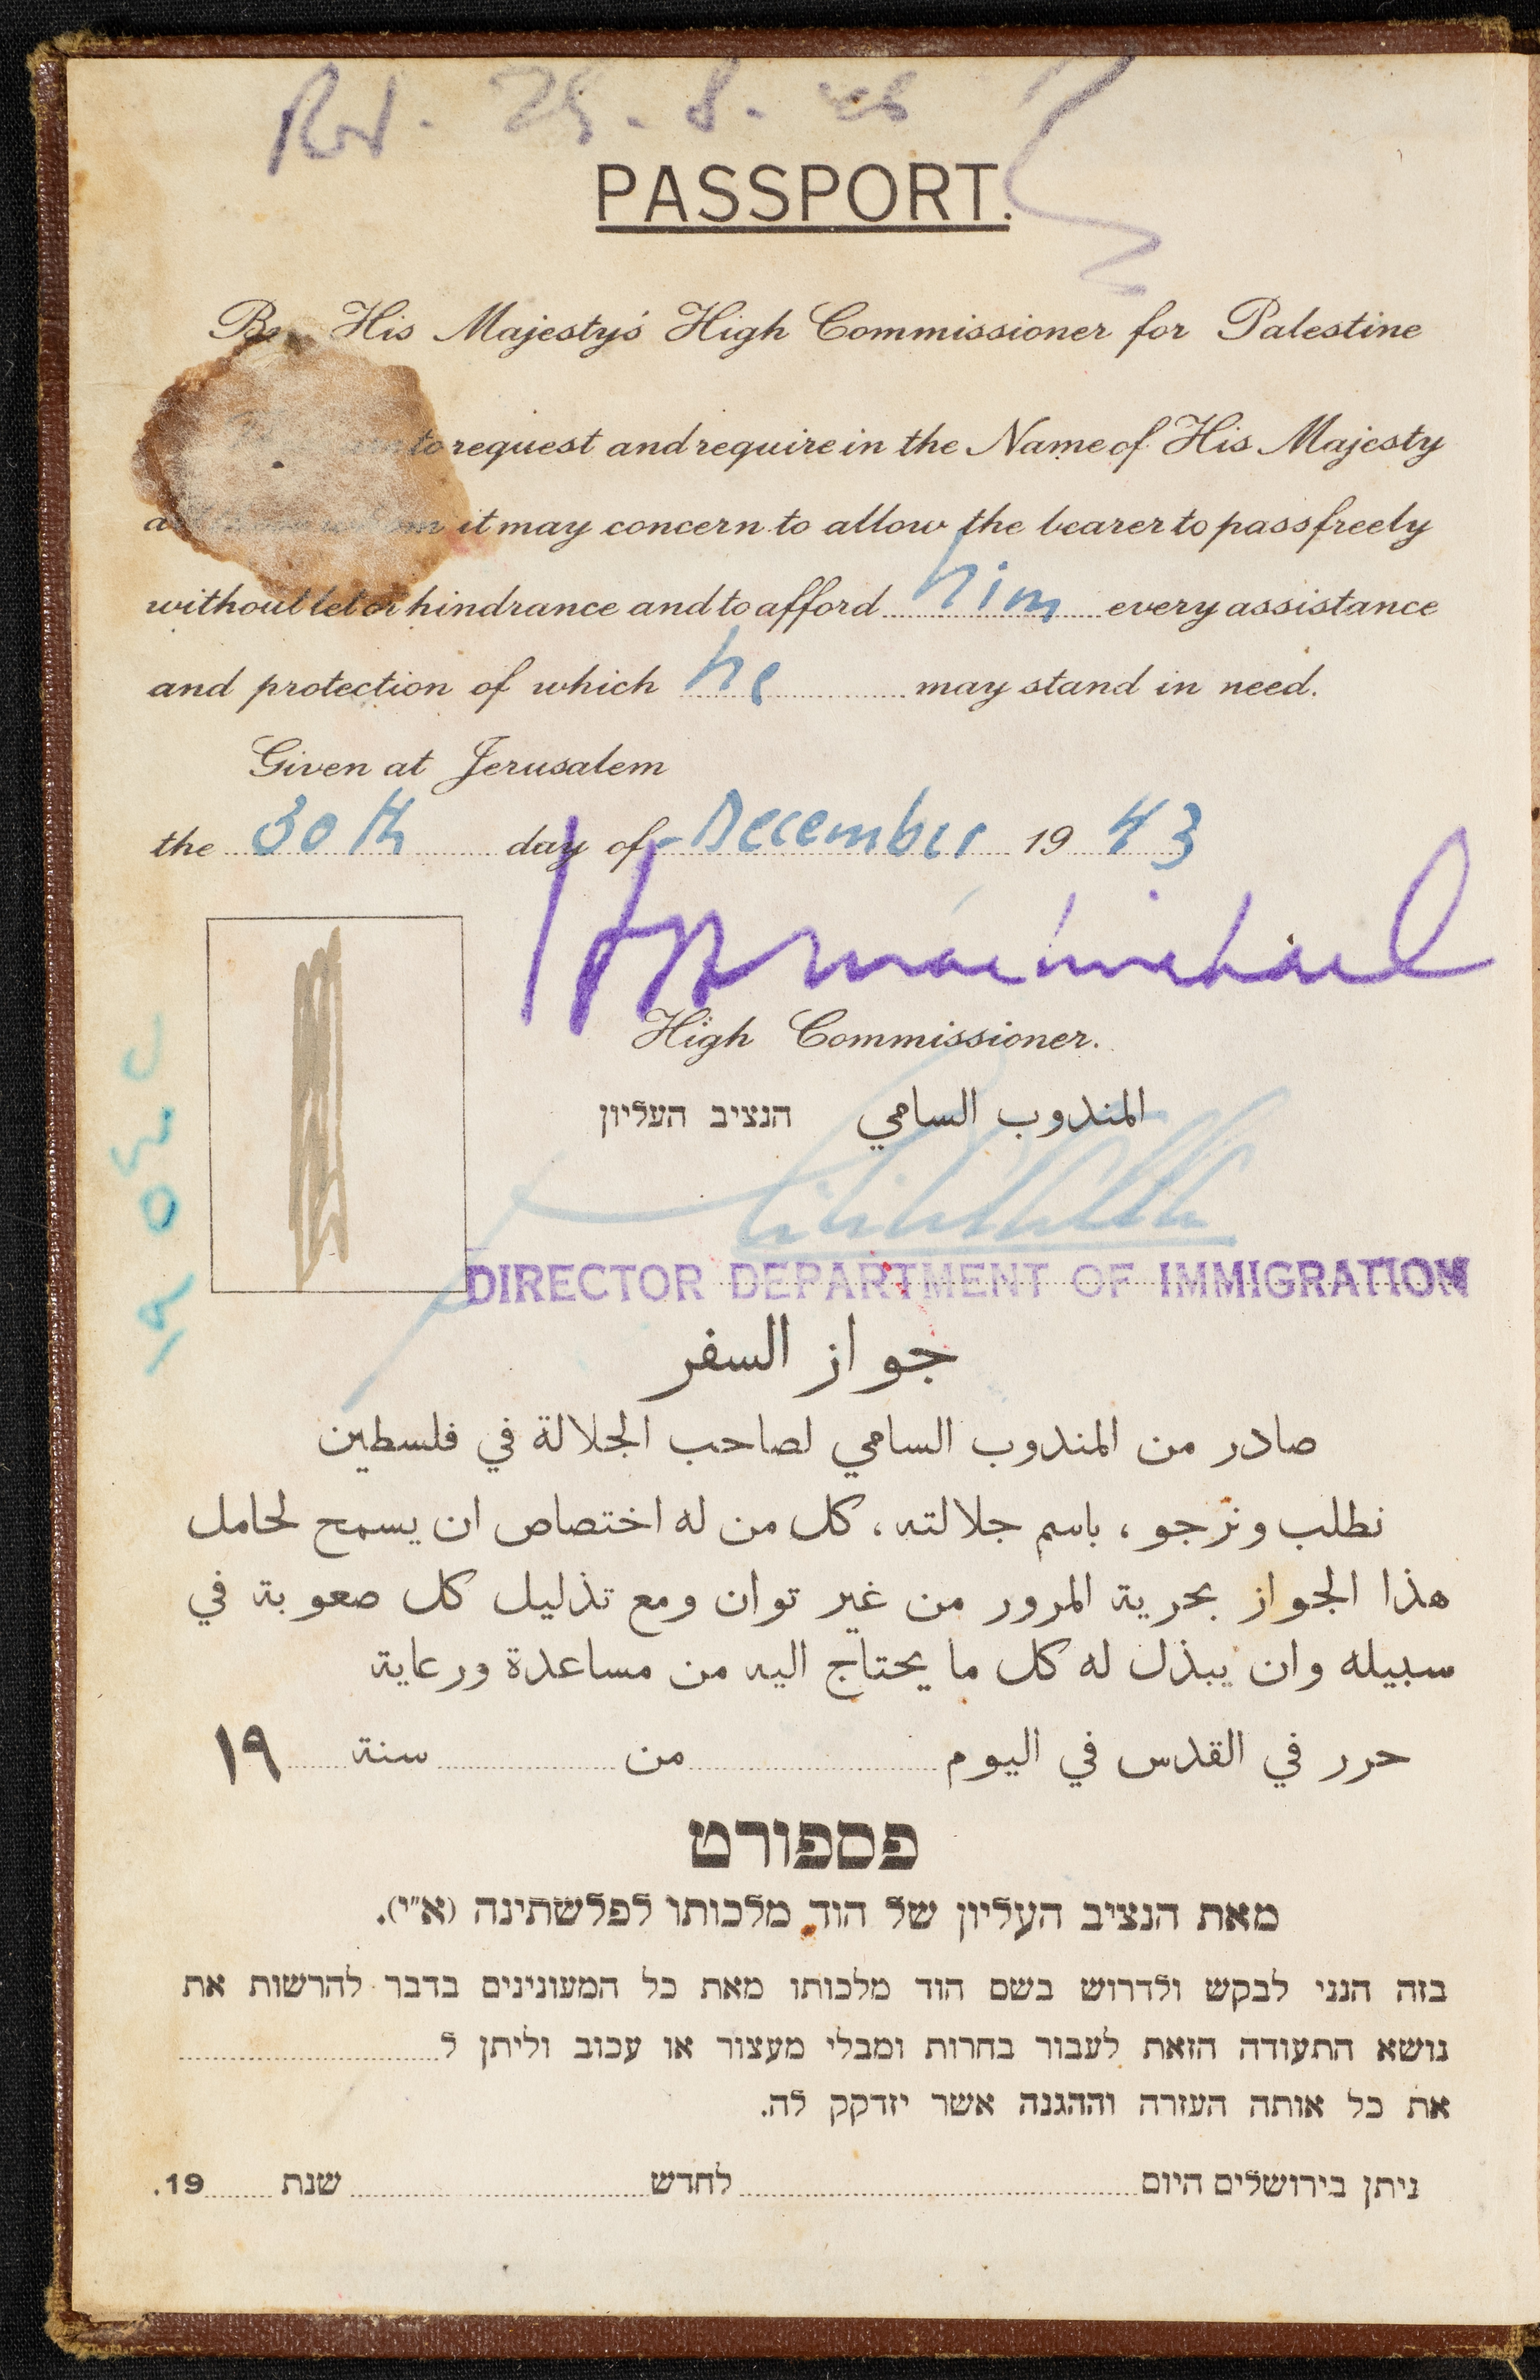 25. 8.
PASSPORT.
By His Majesty's High Commissioner for Palestine
to request and require in the Name of His Majesty
it may concern to allow the bearer to pass freely
without let or hindrance and to afford him every assistance
and protection of which he may stand in need.
Given at Jerusalem
the 30th day of December 19 43
MacMichael
High Commissioner.
المندوب السامي הנציב העליון
DIRECTOR DEPARTMENT OF IMMIGRATION
جواز السفر
صادر من المندوب السامي لصاحب الجلالة في فلسطين
نطلب ونرجو ، باسم جلالته ، كل من له اختصاص ان يسمح لحامل
هذا الجواز بحرية المرور من غير توان ومع تذليل كل صعوبة في
سبيله وان يبذل له كل ما يحتاج اليه من مساعدة ورعاية
حرر في القدس في اليوم من سنة ١٩
פספורט
מאת הנציב העליון של הוד מלכותו לפלשתינה (א״י).
בזה הנני לבקש ולדרוש בשם הוד מלכותו מאת כל המעונינים בדבר להרשות את
נושא התעודה הזאת לעבור בחרות ומבלי מעצור או עכוב וליתן ל
את כל אותה העזרה וההגנה אשר יזדקק לה.
ניתן בירושלים היום לחדש שנת 19.